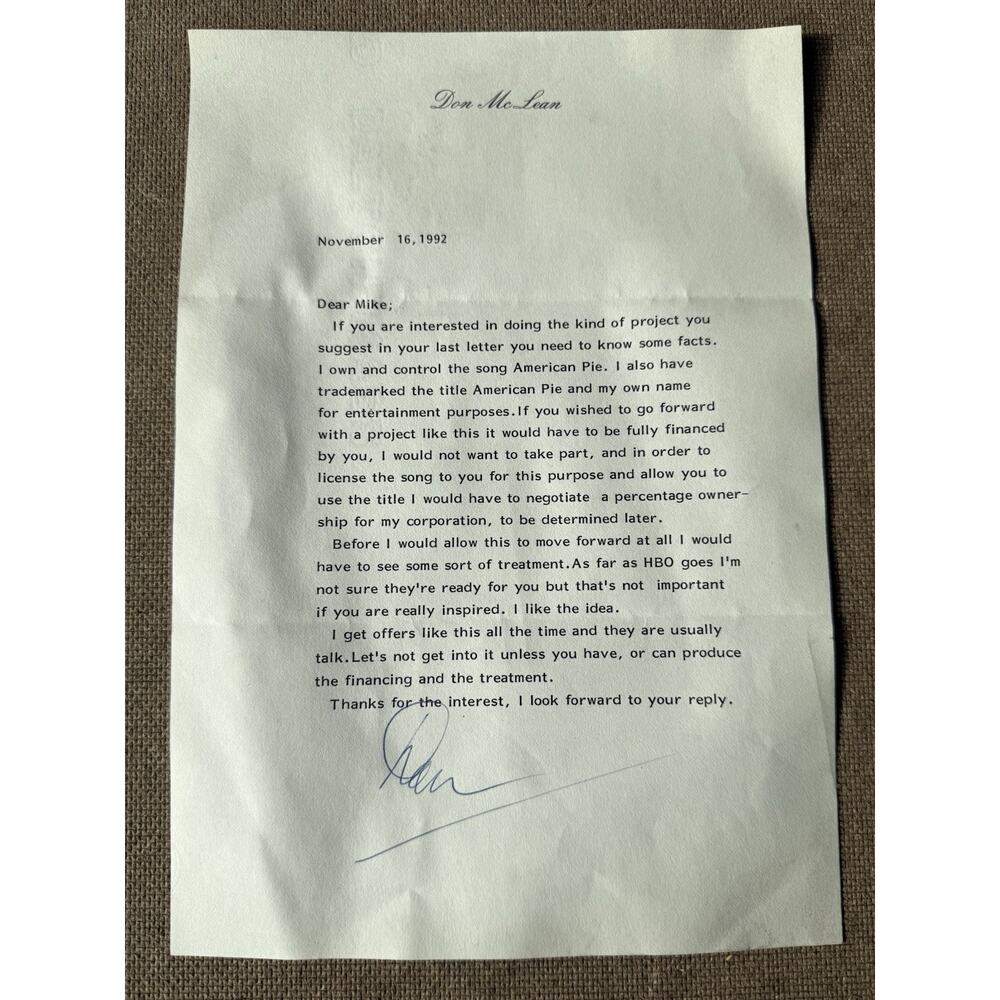 Don McLean
November 16,1992
Dear Mike;
If you are interested in doing the kind of project you
suggest in your last letter you need to know some facts.
I own and control the song American Pie. I also have
trademarked the title American Pie and my own name
for entertainment purposes.If you wished to go forward
with a project like this it would have to be fully financed
by you, I would not want to take part, and in order to
license the song to you for this purpose and allow you to
use the title I would have to negotiate a percentage owner-
ship for my corporation, to be determined later.
Before I would allow this to move forward at all I would
have to see some sort of treatment.As far as HBO goes I'm
not sure they're ready for you but that's not important
if you are really inspired. I like the idea.
I get offers like this all the time and they are usually
talk.Let's not get into it unless you have, or can produce
the financing and the treatment.
Thanks for the interest, I look forward to your reply.
Don